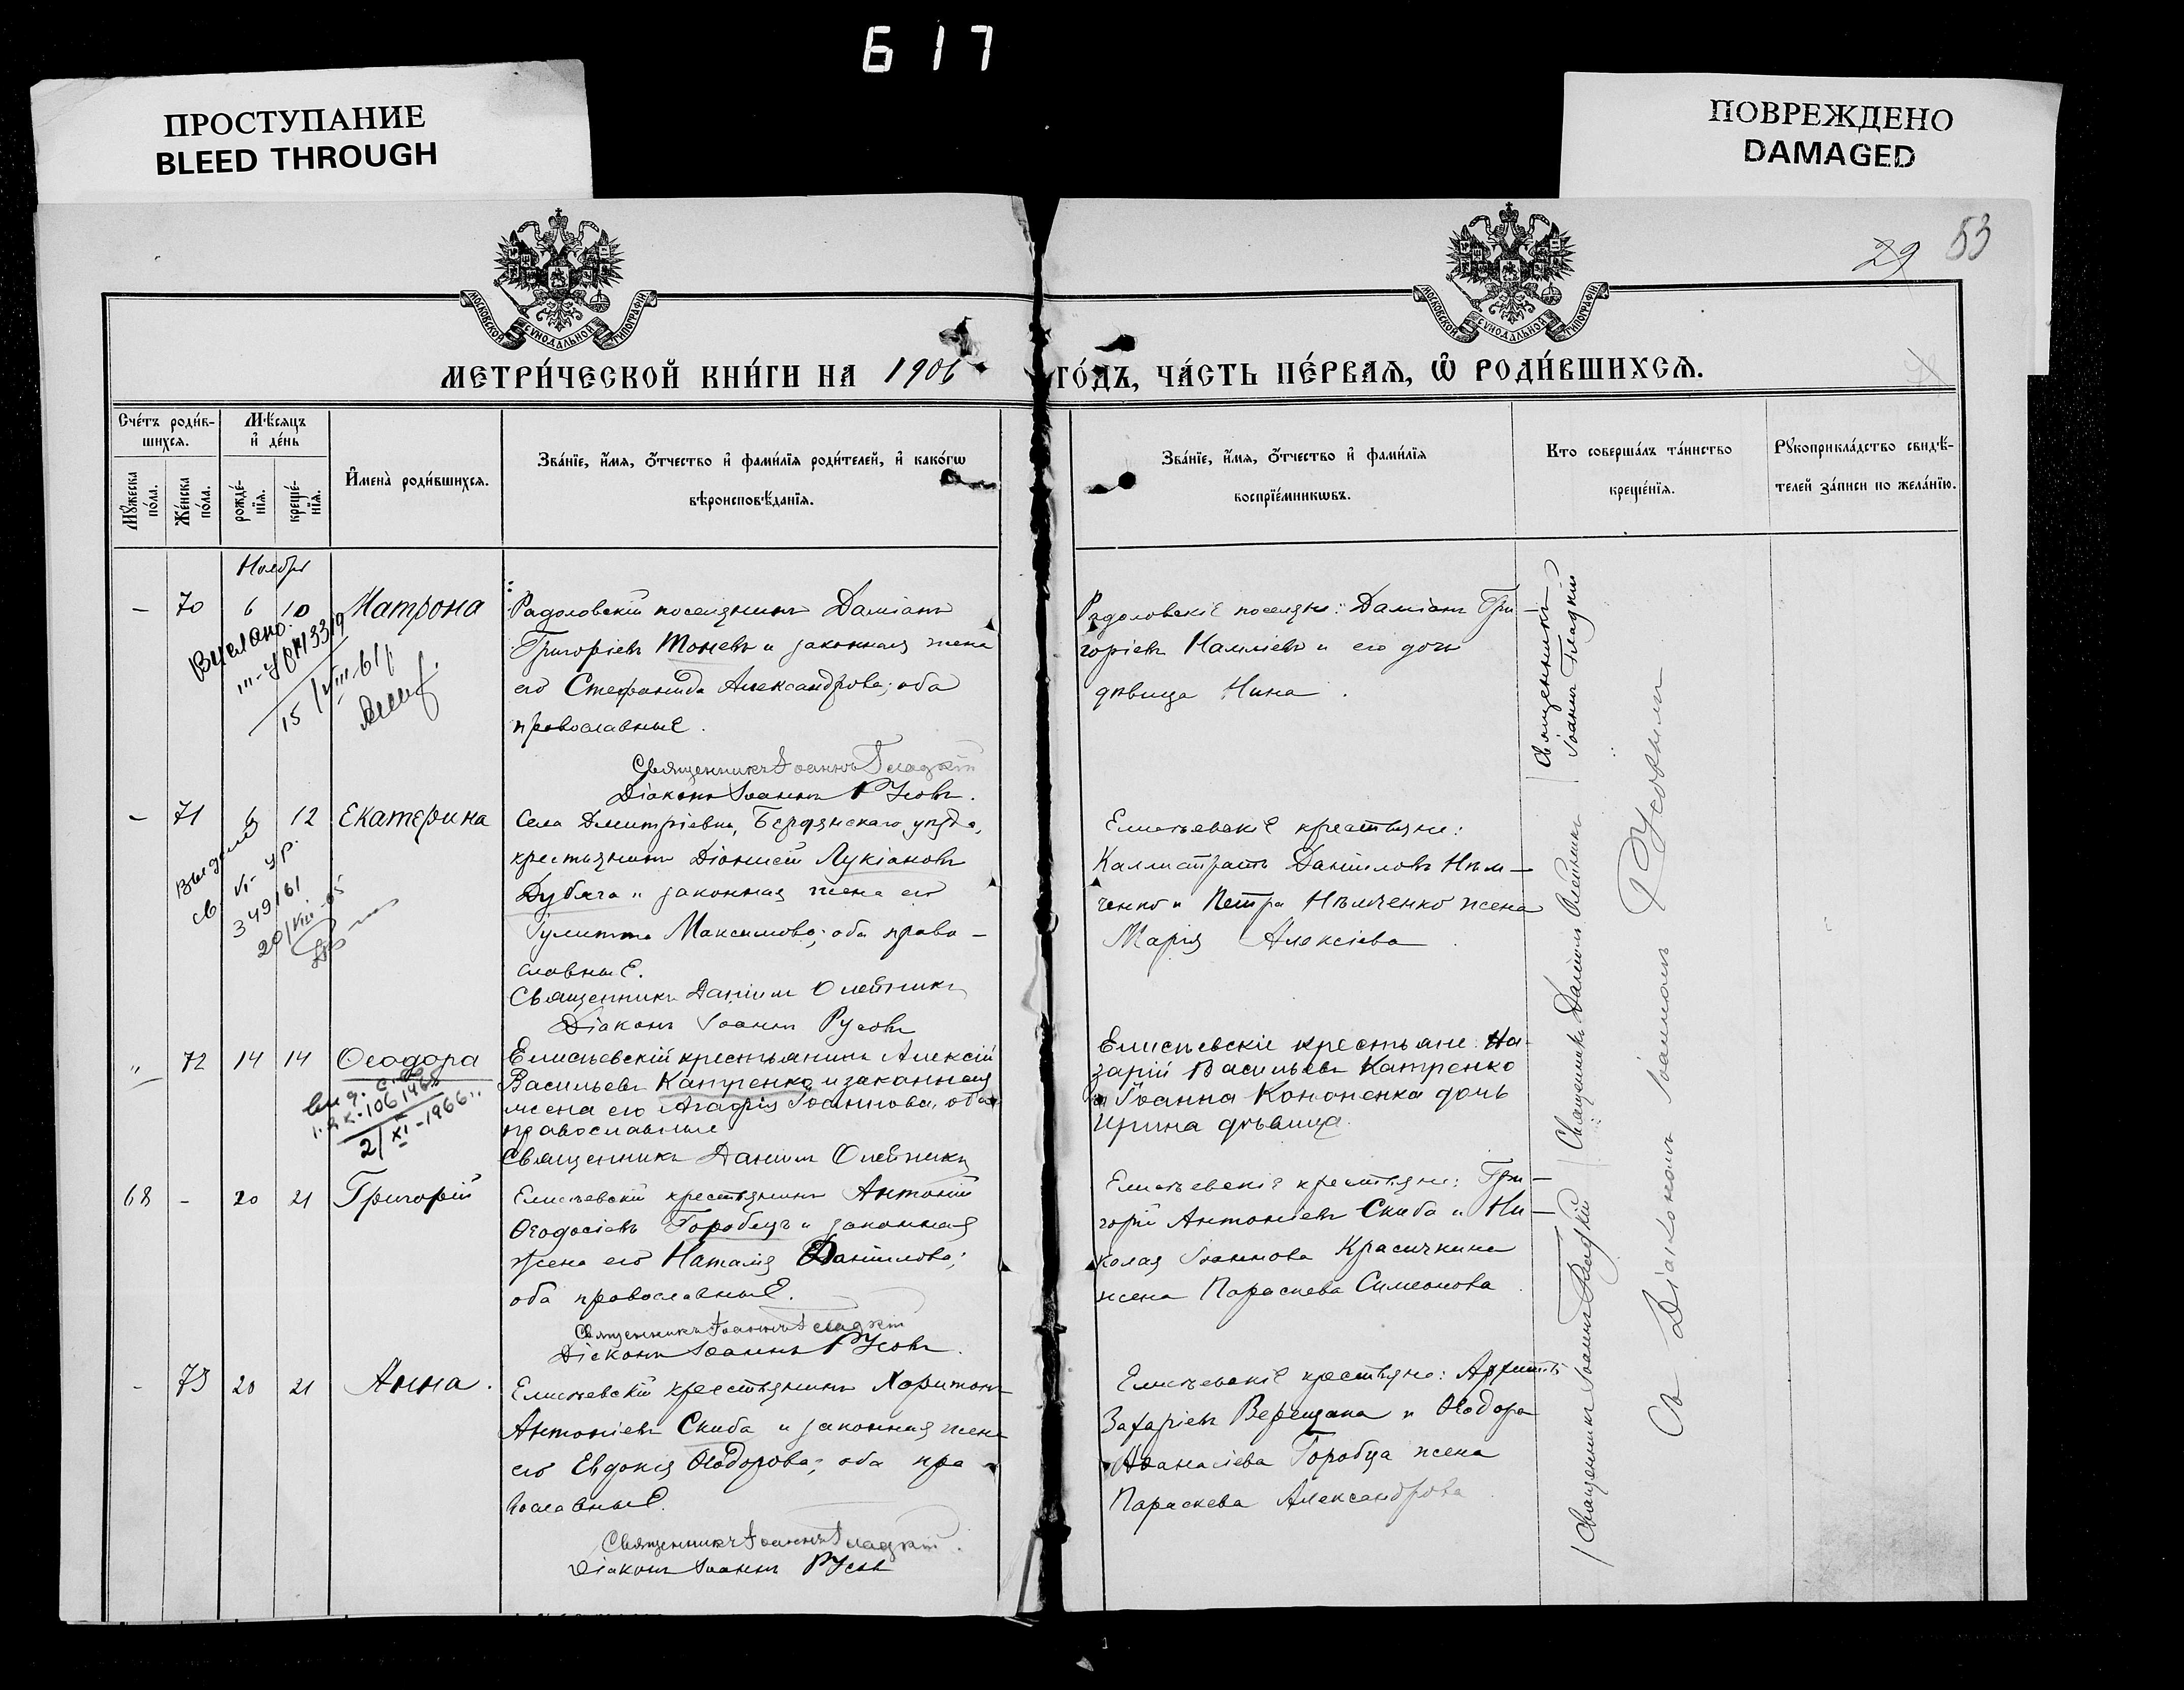 617
ПРОСТУПАНИЕ
BLEED THROUGH
ПОВРЕЖДЕНО
DAMAGED
29 53
МОСКОВСКОЙ СѴНОДАЛЬНОЙ ТИПОГРАФІИ
МОСКОВСКОЙ СѴНОДАЛЬНОЙ ТИПОГРАФІИ
МЕТРИ́ЧЕСКОЙ КНИ́ГИ НА 1906 ГО́ДЪ, ЧА́СТЬ ПЕ́РВАЯ, Ѽ РОДИ́ВШИХСЯ.
Сче́тъ роди́в-
шихся.
Мꙋжеска по́ла.
Же́нска по́ла.
Мѣ́сяцъ
и҆ де́нь
рожде́-
нїя.
креще́-
нїя.
И҆мена̀ роди́вшихся.
Зва́нїе, и҆́мя, ѻ҆́тчество и҆ фами́лїя роди́телей, и҆ како́гѡ
вѣроисповѣ́данїя.
Зва́нїе, и҆́мя, ѻ҆́тчество и҆ фами́лїя
воспрїе́мникѡвъ.
Кто соверша́лъ та́инство
креще́нїя.
Рꙋкоприкла́дство свидѣ́-
телей за́писи по жела́нїю.
Ноября
– 70 6 10 Матрона
Радоловскій поселянинъ Даміанъ
Григоріевъ Тоневъ и законная жена
его Стефанида Александрова; оба
православные.
Священникъ Іоаннъ Гладкій
Діаконъ Іоаннъ Русовъ.
Радоловскіе поселяне: Даміанъ Гри-
горіевъ и его дочь
дѣвица Нина.
Священникъ
Іоаннъ Гладкій
15/VIII-61
– 71 6 12 Екатерина
Села Дмитріевки, Бердянскаго уѣзда,
крестьянинъ Діонисій Лукіановъ
Дубяга и законная жена его
Іулитта Максимова; оба право-
славные.
Священникъ Даніилъ Олейникъ
Діаконъ Іоаннъ Русовъ
Елисѣевскіе крестьяне:
Каллистратъ Даніиловъ Нѣм-
ченко и Петра Нѣмченко жена
Марія Алексіева
Священникъ Даніилъ Олейникъ
349161
" 72 14 14 Ѳеодора
Елисѣевскій крестьянинъ Алексій
Васильевъ Катренко и законная
жена его Агафія Іоаннова, оба
православные
Священникъ Даніилъ Олейникъ
Елисѣевскіе крестьяне: На-
зарій Васильевъ Катренко
и Іоанна Кононенка дочь
Ирина дѣвица.
2/XI-1966
68 – 20 21 Григорій
Елисѣевскій крестьянинъ Антоній
Ѳеодосіевъ Горобецъ и законная
жена его Наталія Даніилова;
оба православные.
Священникъ Іоаннъ Гладкій
Діаконъ Іоаннъ Русовъ.
Елисѣевскіе крестьяне: Гри-
горій Антоніевъ Скиба и Ни-
колая Іоаннова Красичкина
жена Параскева Симеонова
Священникъ Іоаннъ Гладкій
- 73 20 21 Анна.
Елисѣевскій крестьянинъ Харитонъ
Антоніевъ Скиба и законная жена
его Евдокія Ѳеодорова; оба пра
вославные.
Священникъ Іоаннъ Гладкій.
Діаконъ Іоаннъ Русовъ
Елисѣевскіе крестьяне:
Захаріевъ Верещака и Ѳеодора
Аѳанасіева Горобца жена
Параскева Александрова
Съ Діакономъ Іоанномъ Русовымъ